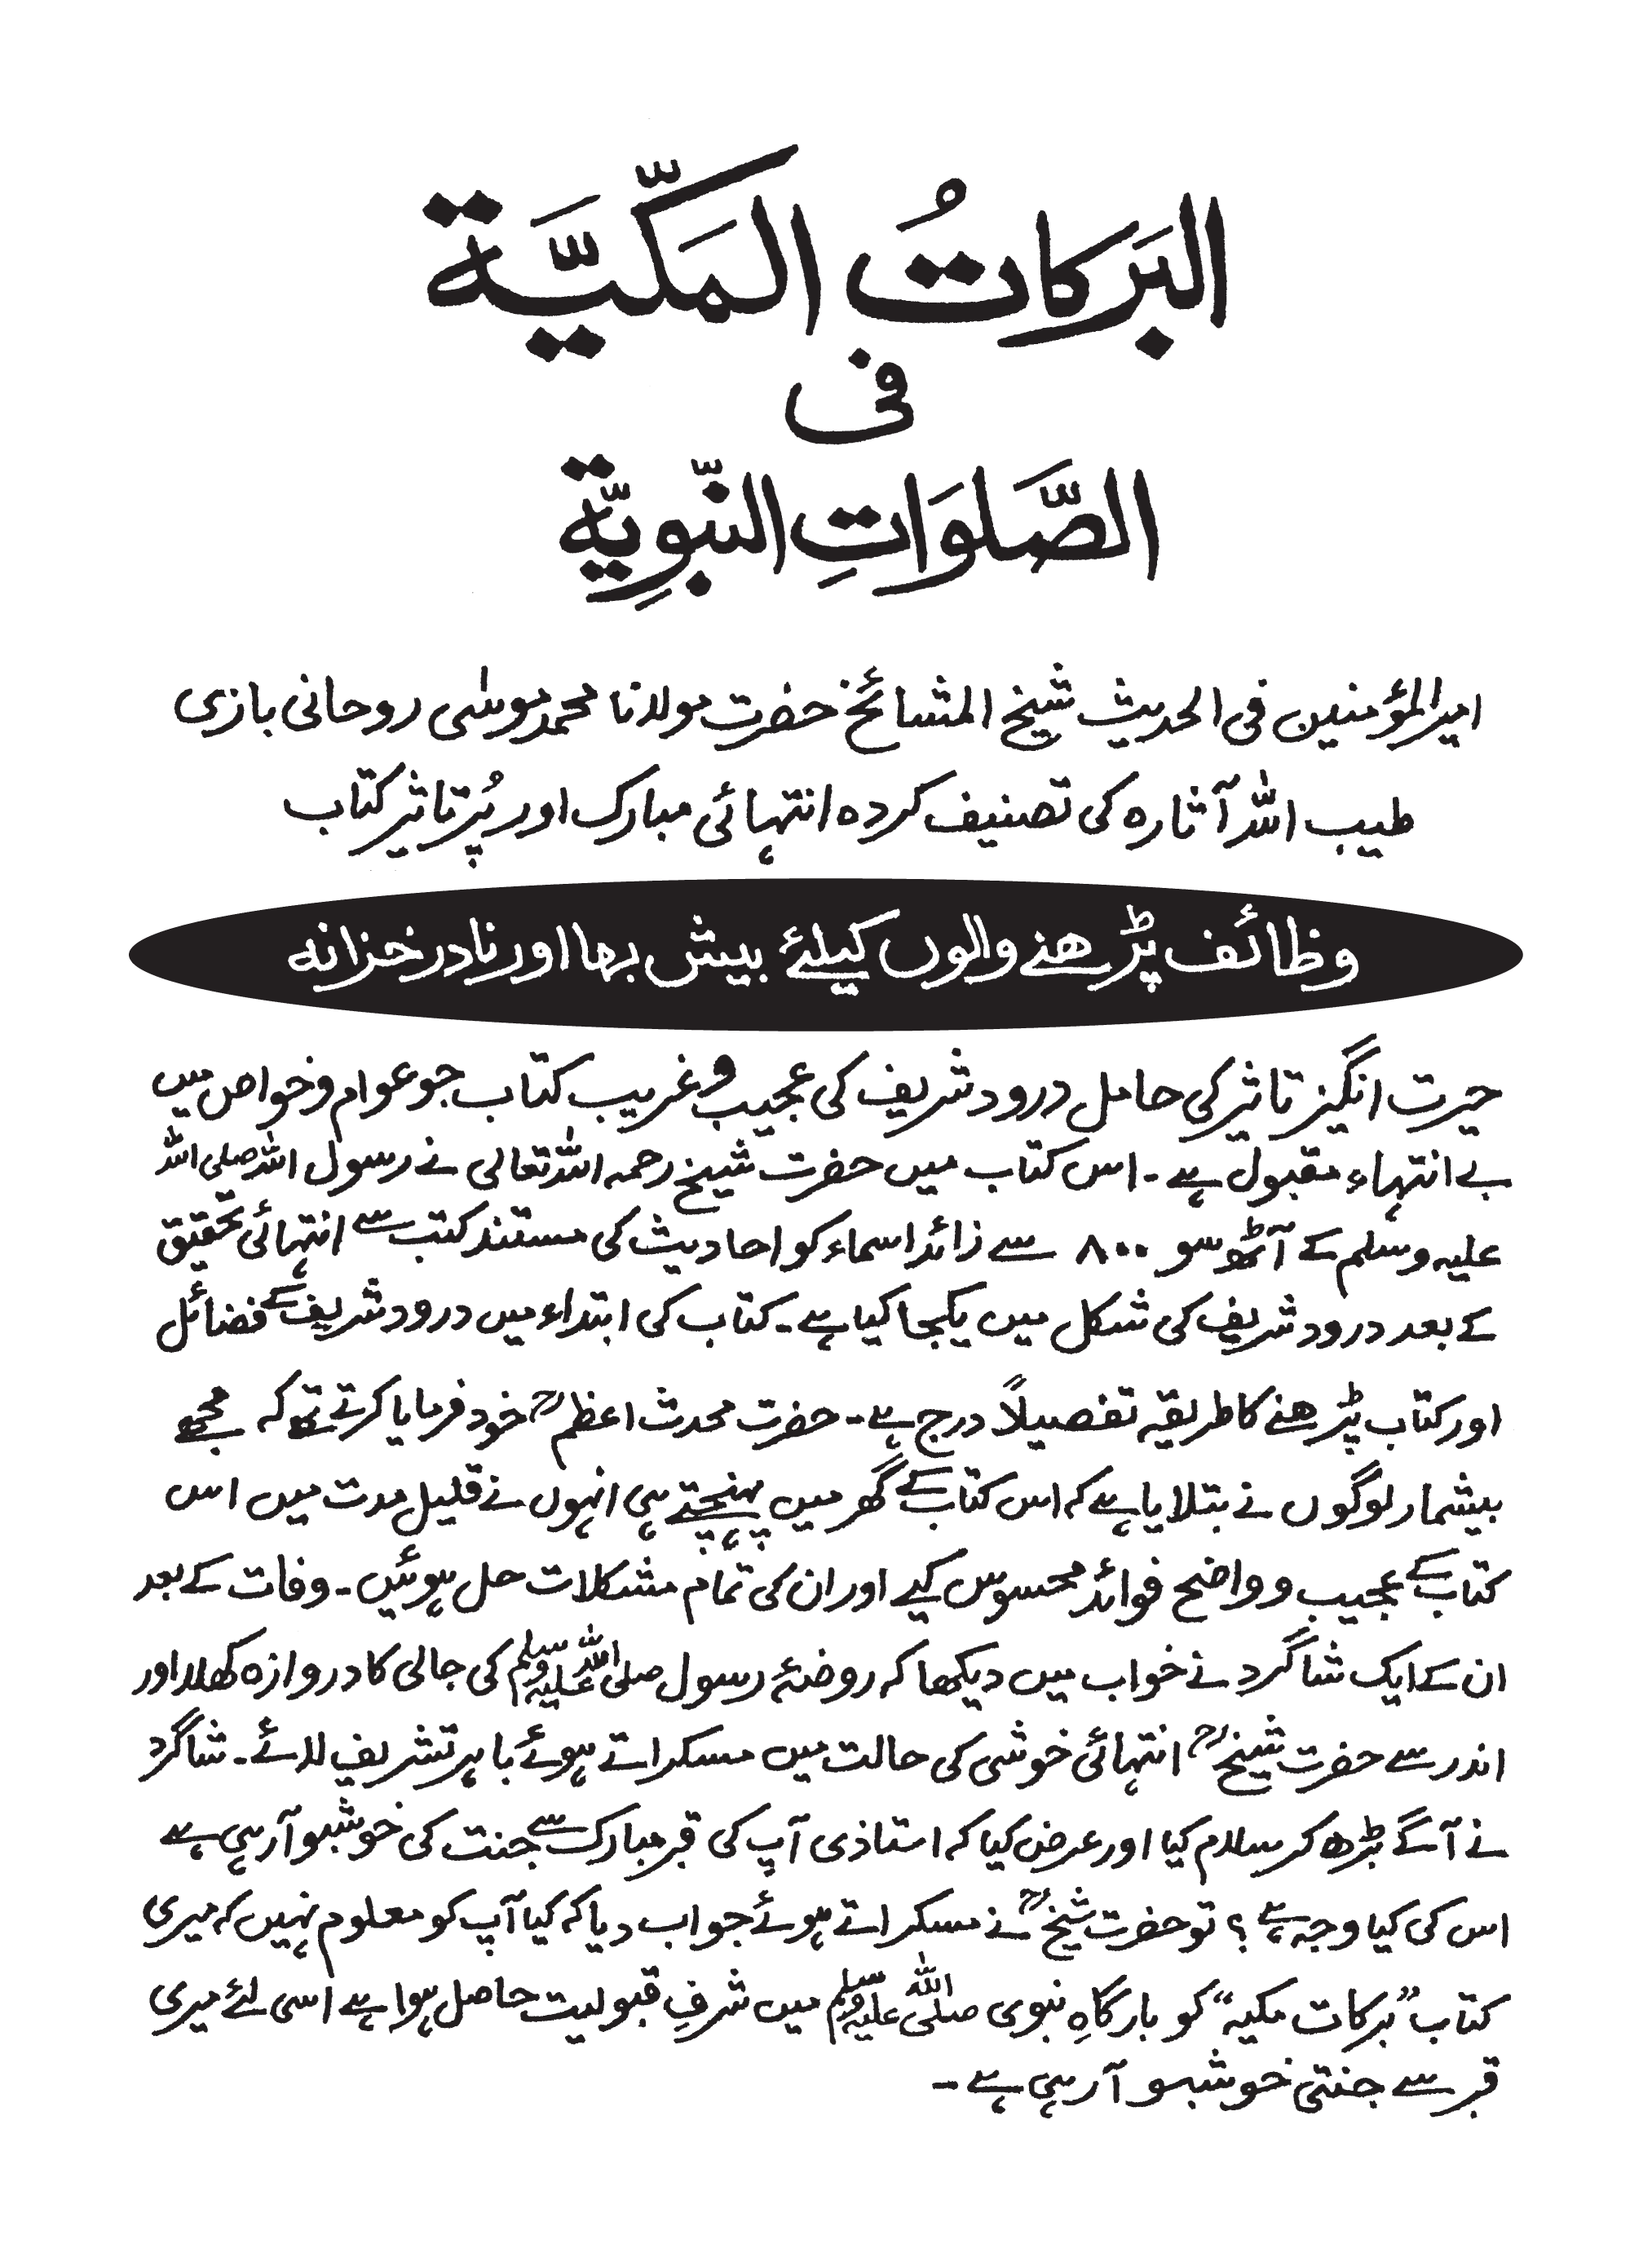 البَرَكاتُ المَكِّيَّة
فی
الصَّلوَاتِ النّبوِیّة
امیرالمؤمنین فی الحدیث شیخ المشائخ حضرت مولانا محمد موسٰی روحانی بازی
طیب اللّٰہ آثارہ کی تصنیف کردہ انتہائی مبارک اور پُرتاثیر کتاب
وظائف پڑھنے والوں کیلئے بیش بہا اور نادر خزانہ
حیرت انگیز تاثیر کی حامل درود شریف کی عجیب و غریب کتاب جو عوام و خواص میں
بے انتہاء مقبول ہے۔ اس کتاب میں حضرت شیخ رحمہ اللّٰہ تعالی نے رسول اللّٰہ صلی اللّٰہ
علیہ وسلم کے آٹھ سو ۸۰۰ سے زائد اسماء کو احادیث کی مستند کتب سے انتہائی تحقیق
کے بعد درود شریف کی شکل میں یکجا کیا ہے۔ کتاب کی ابتداء میں درود شریف کے فضائل
اور کتاب پڑھنے کا طریقہ تفصیلاً درج ہے۔ حضرت محدث اعظمؒ خود فرمایا کرتے تھے کہ مجھے
بیشمار لوگوں نے بتلایا ہے کہ اس کتاب کے گھر میں پہنچتے ہی انہوں نے قلیل مدت میں اس
کتاب کے عجیب و واضح فوائد محسوس کیے اور ان کی تمام مشکلات حل ہوئیں۔ وفات کے بعد
ان کے ایک شاگرد نے خواب میں دیکھا کہ روضۂ رسول صلی اللّٰہ علیہ وسلم کی جالی کا دروازہ کھلا اور
اندر سے حضرت شیخؒ انتہائی خوشی کی حالت میں مسکراتے ہوئے باہر تشریف لائے۔ شاگرد
نے آگے بڑھ کر سلام کیا اور عرض کیا کہ استاذی آپ کی قبر مبارک سے جنت کی خوشبو آرہی ہے
اس کی کیا وجہ ہے؟ تو حضرت شیخؒ نے مسکراتے ہوئے جواب دیا کہ کیا آپ کو معلوم نہیں کہ میری
کتاب ”برکات مکیہ“ کو بارگاہِ نبوی صلی اللّٰہ علیہ وسلم میں شرفِ قبولیت حاصل ہوا ہے اسی لئے میری
قبر سے جنتی خوشبو آرہی ہے۔